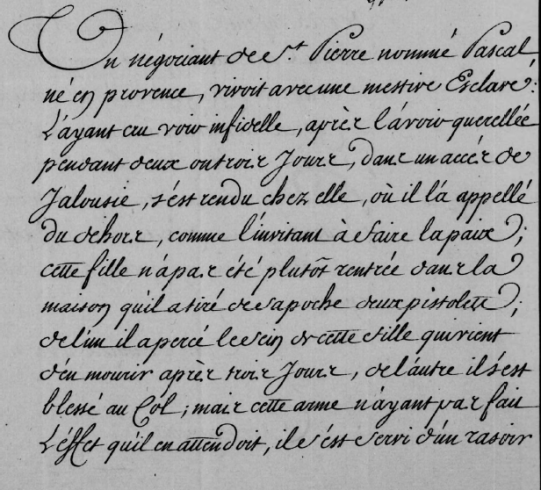 Un négociant de St. Pierre nommé Pascal
né en provence, vivoit avec une mestive Esclave:
L'ayant cru voir infidelle, après l'avoir querellée
pendant deux ou trois Jours, dans un accés de
Jalousie, s'est rendu chez elle, où il l'a appellé
du dehors, comme l'invitant à faire la paix;
cette fille n'a pas été plutôt rentrée dans la
maison qu'il a tiré de sa poche deux pistolets;
de l'un il a percé le sein de cette fille qui vient
d'en mourir après trois Jours, de l'autre il s'est
blessé au Col; mais cette arme n'ayant pas fait
L'effet qu'il en attendoit, il s'est servi d'un rasoir